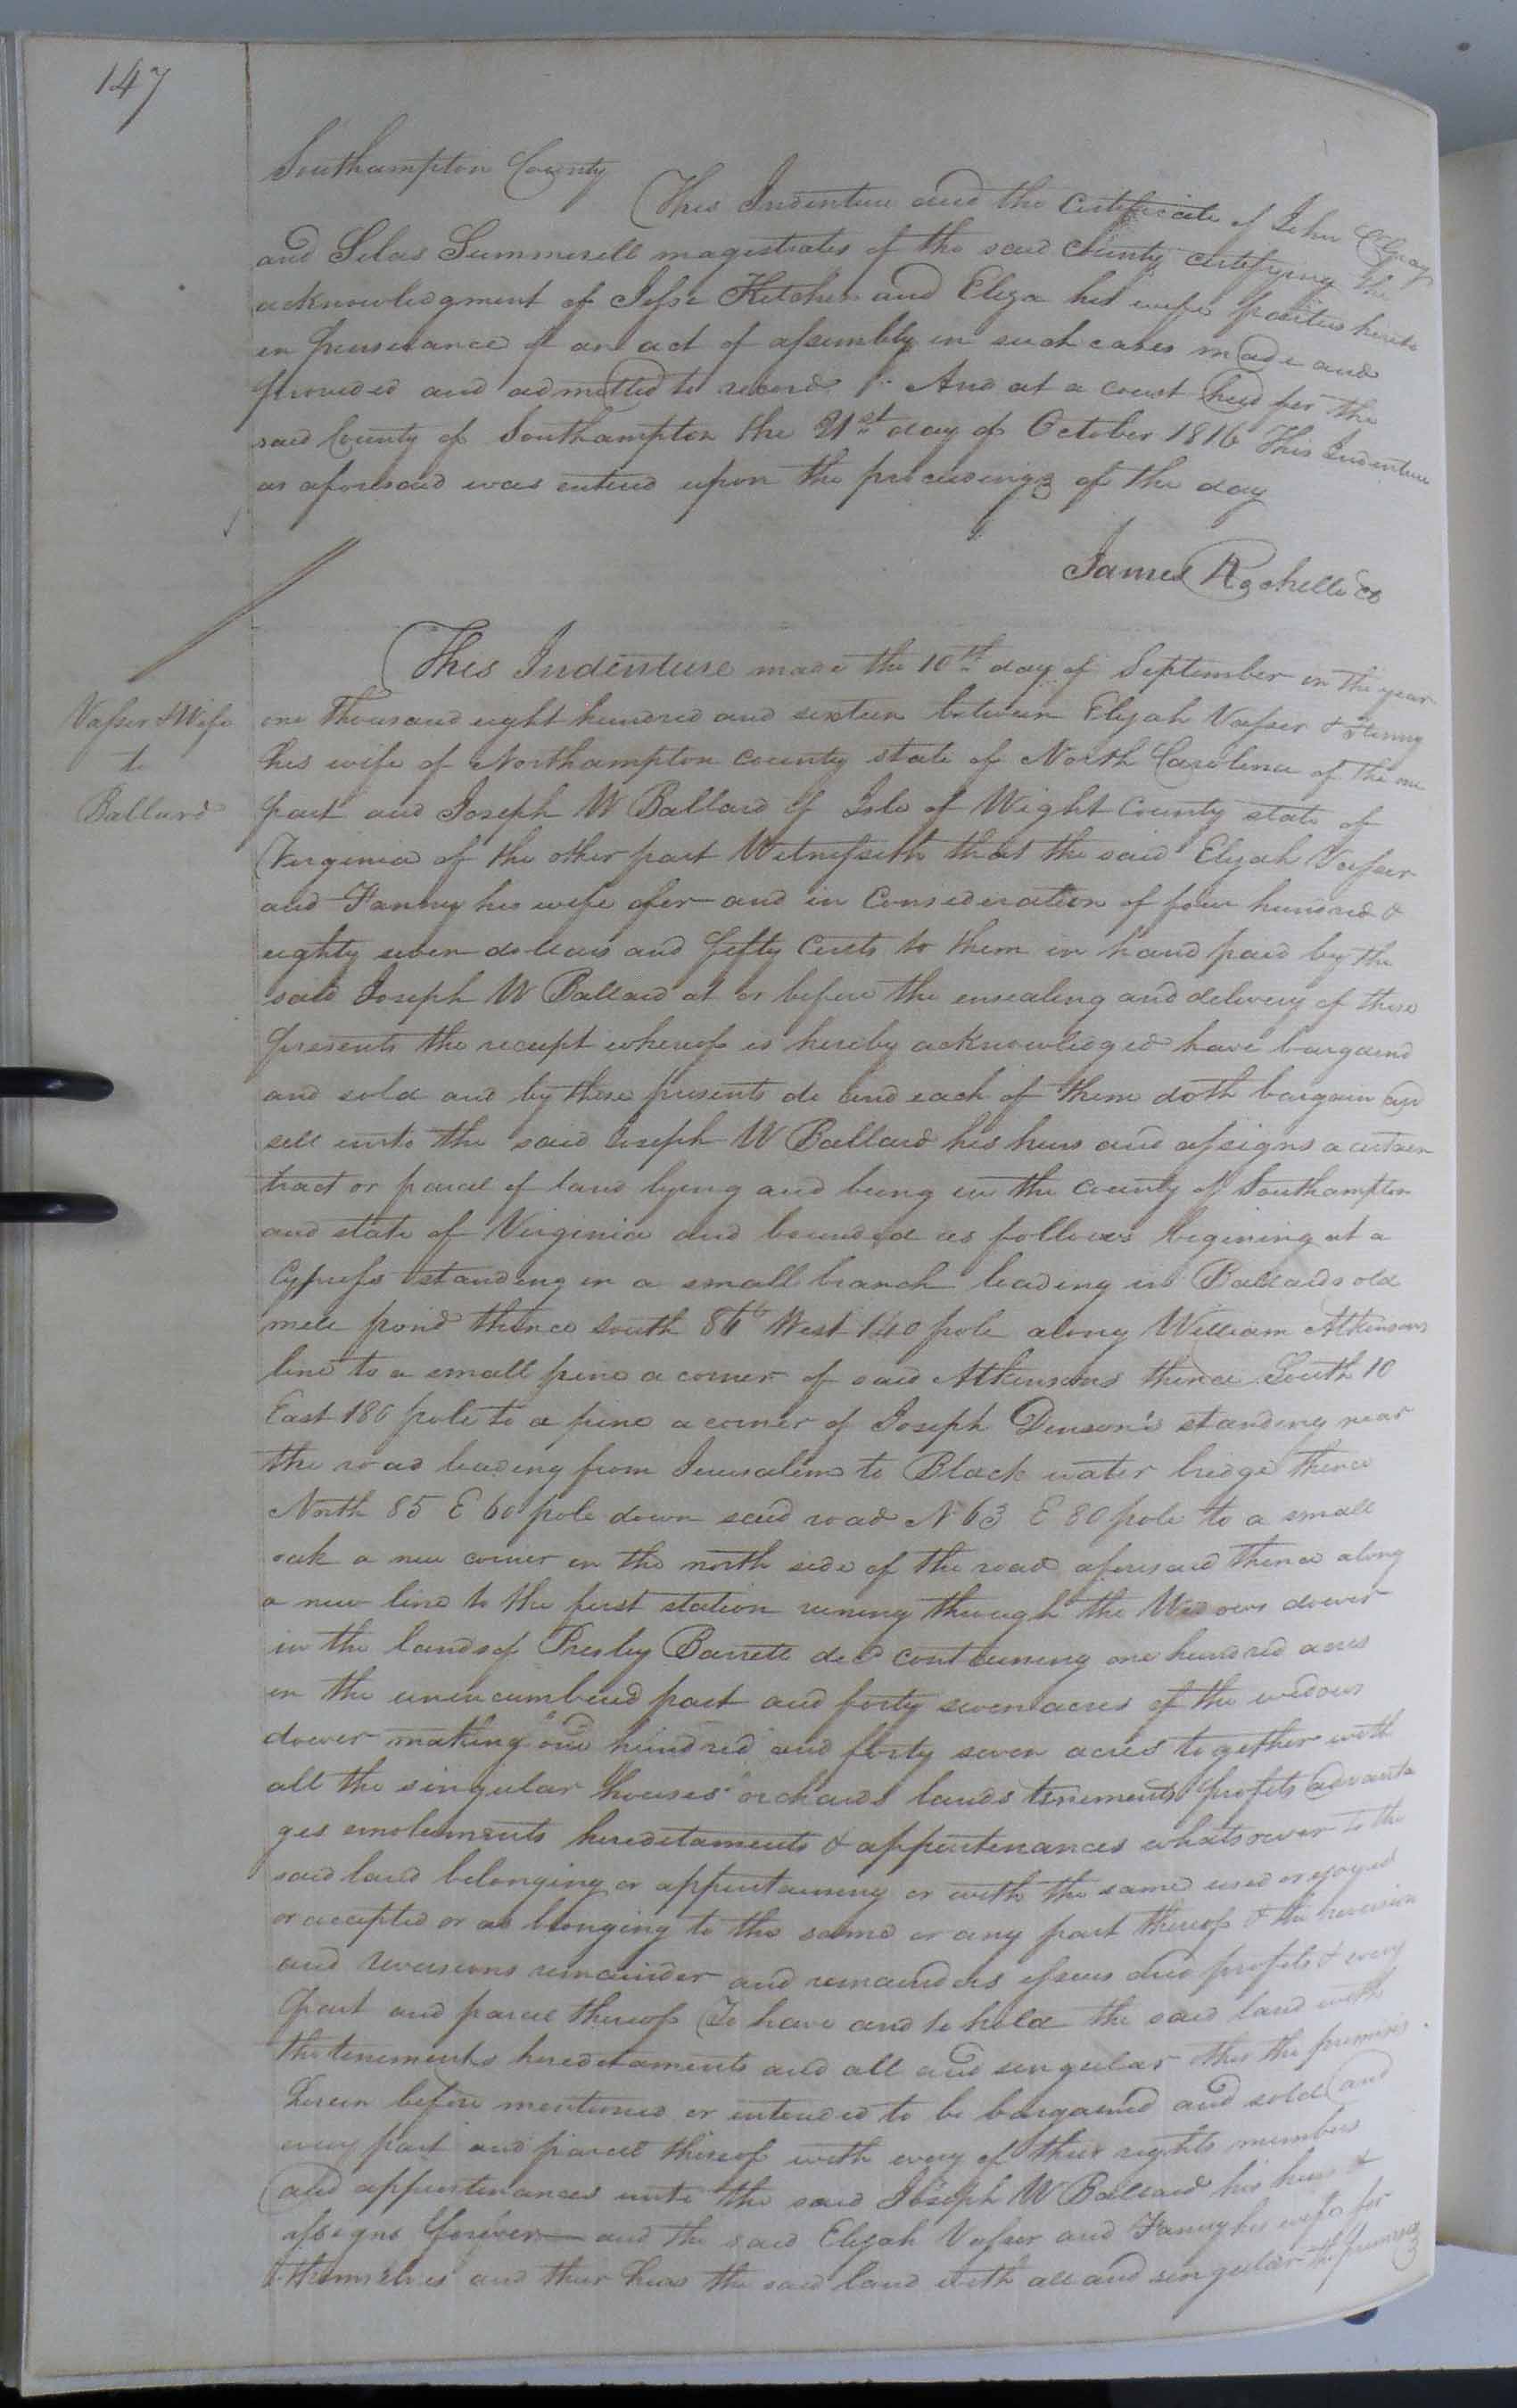 147
Southampton County
This Indenture and the Certificate of John C Gray
and Silas Summerell magistrates of the said County certifying the
acknowledgment of Jesse Kitchen and Eliza his wife parties hereto
in pursuance of an act of assembly in such cases made and
provided and admitted to record. And at a court held for the
said County of Southampton the 21st day of October 1816 This Indenture
as aforesaid was entered upon the proceedings of the day
James Rochelle
This Indenture made the 10th day of September in the year
Vasser & Wife
to
Ballard
one thousand eight hundred and sixteen between Elijah Vasser &
his wife of Northampton county state of North Carolina of the one
part and Joseph W Ballard of Isle of Wight County state of
Virginia of the other part Witnesseth that the said Elijah Vasser
and Fanny his wife for and in Consideration of four hundred &
eighty seven dollars and fifty Cents to them in hand paid by the
said Joseph W Ballard at or before the ensealing and delivery of these
presents the receipt whereof is hereby acknowledged have bargaind
and sold and by these presents do and each of them doth bargain and
sell unto the said Joseph W Ballard his heirs and assigns a certain
tract or parcel of land lying and being in the County of Southampton
and state of Virginia and bounded as follows begining at a
Cypress standing in a small branch leading in Ballards old
mill pond thence south West 140 pole along William Atkinsons
line to a small pine a corner of said Atkinsons thence South 10
East 186 pole to a pine a corner of Joseph Denson's standing near
the road leading from Jerusalem to Black water bridge thence
North 85 E 60 pole down said road N 63 E 80 pole to a small
oak a new corner on the north side of the road aforesaid thence along
a new line to the first station runing through the Widows dower
in the lands of Presley Barrett decd containing one hundred acres
in the unincumbered part and forty seven acres of the widows
dower making one hundred and forty seven acres together with
all the singular houses orchards lands tenements profits advanta
ges emoluments hereditaments & appurtenances whatsoever to the
said land belonging or appertaining or with the same used or ejoyed
or accepted or as blonging to the same or any part thereof & the reversion
and reversions remainder and remainders issues and profits & every
part and parcel thereof To have and to hold the said land with
the tenements hereditaments and all and singular other the premises
herein before mentioned or intended to be bargained and sold and
every part and parcel thereof with every of their rights members
and appurtenances unto the said Joseph W Ballard his heirs &
assigns forever and the said Elijah Vasser and Fanny his wife for
themselves and their heirs the said land with all and singular the premises